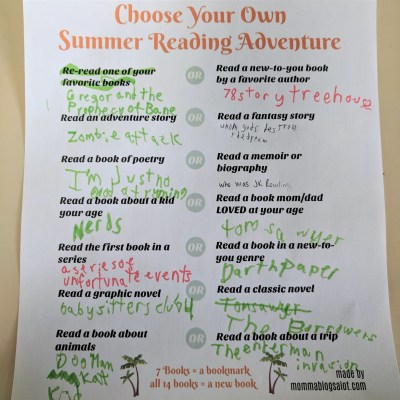 Choose Your Own
Summer Reading Adventure
Re-read one of your
favorite books
OR
Read a new-to-you book
by a favorite author
Gregor and the
Prophecy of Bane
78 story treehouse
Read an adventure story
OR
Read a fantasy story
Zombie attack
Read a book of poetry
OR
Read a memoir or
biography
I'm Just no
good at rhyming
who was JK Rowling
Read a book about a kid
your age
OR
Read a book mom/dad
LOVED at your age
Nerds
tom sawyer
Read the first book in a
series
OR
Read a book in a new-to-
you genre
a series of
unfortunate events
Darth Paper
Read a graphic novel
OR
Read a classic novel
babysitters club 4
Tom sawyer
The Borrowers
Read a book about
animals
OR
Read a book about a trip
Dog Man
The entesman
invasion
7 Books = a bookmark
all 14 books = a new book
made by
mommablogsalot.com